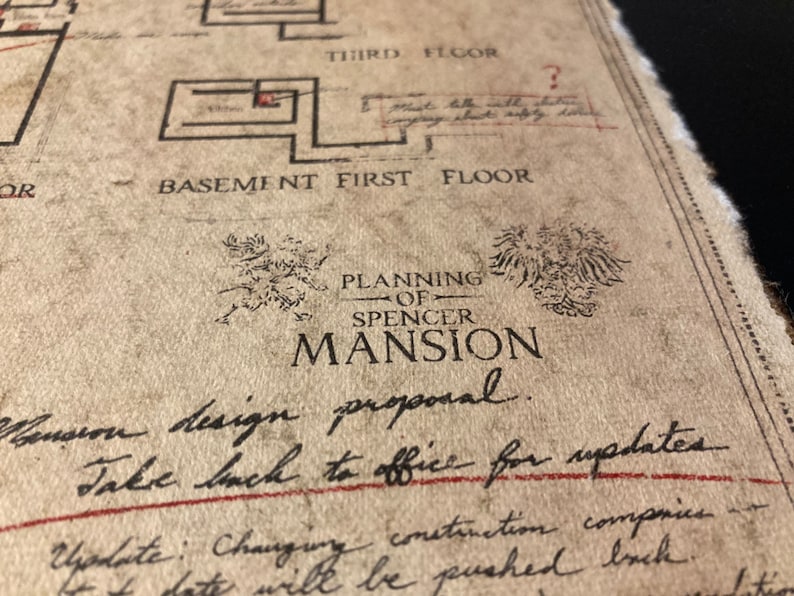 THIRD FLOOR
?
Must talk with electric
company about safety
OOR
BASEMENT FIRST FLOOR
PLANNING
OF
SPENCER
MANSION
Mansion design proposal.
Take back to office for updates
Update: Changing construction companies --
date will be pushed back.